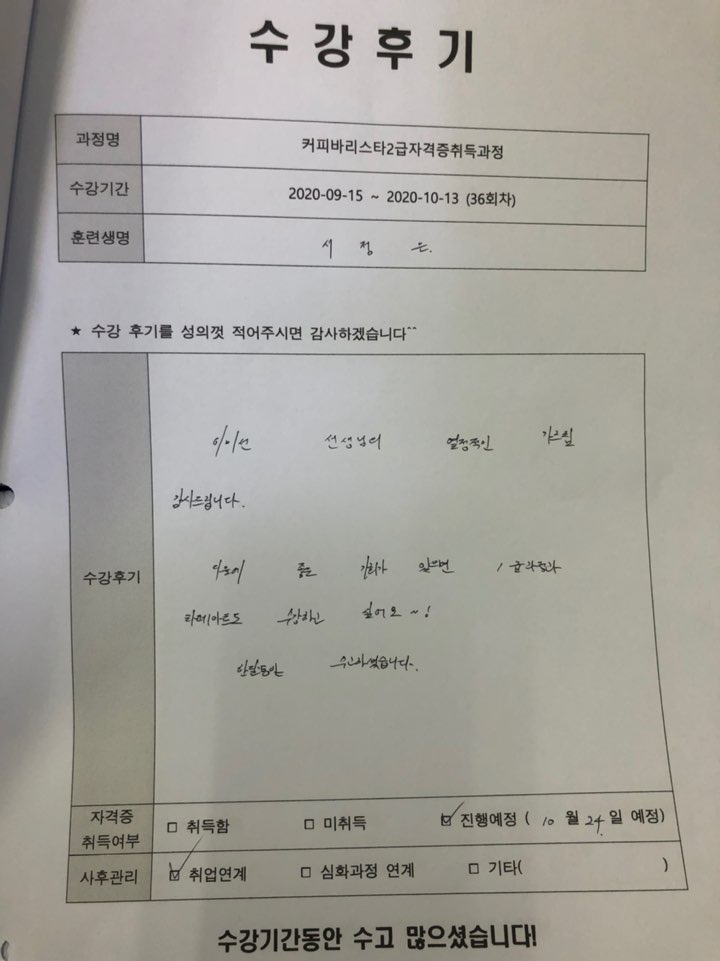 수강후기
과정명 커피바리스타2급자격증취득과정
수강기간 2020-09-15 ~ 2020-10-13 (36회차)
훈련생명 서 정 은.
★ 수강 후기를 성의껏 적어주시면 감사하겠습니다^^
수강후기
선생님의 열정적인 가르침
감사드립니다.
다음에 좋은 기회가 있으면 1급과정과
라떼아트도 수강하고 싶어요~!
한달동안 수고하셨습니다.
자격증 취득여부 □ 취득함 □ 미취득 ☑ 진행예정 ( 10 월 24 일 예정)
사후관리 ☑ 취업연계 □ 심화과정 연계 □ 기타( )
수강기간동안 수고 많으셨습니다!